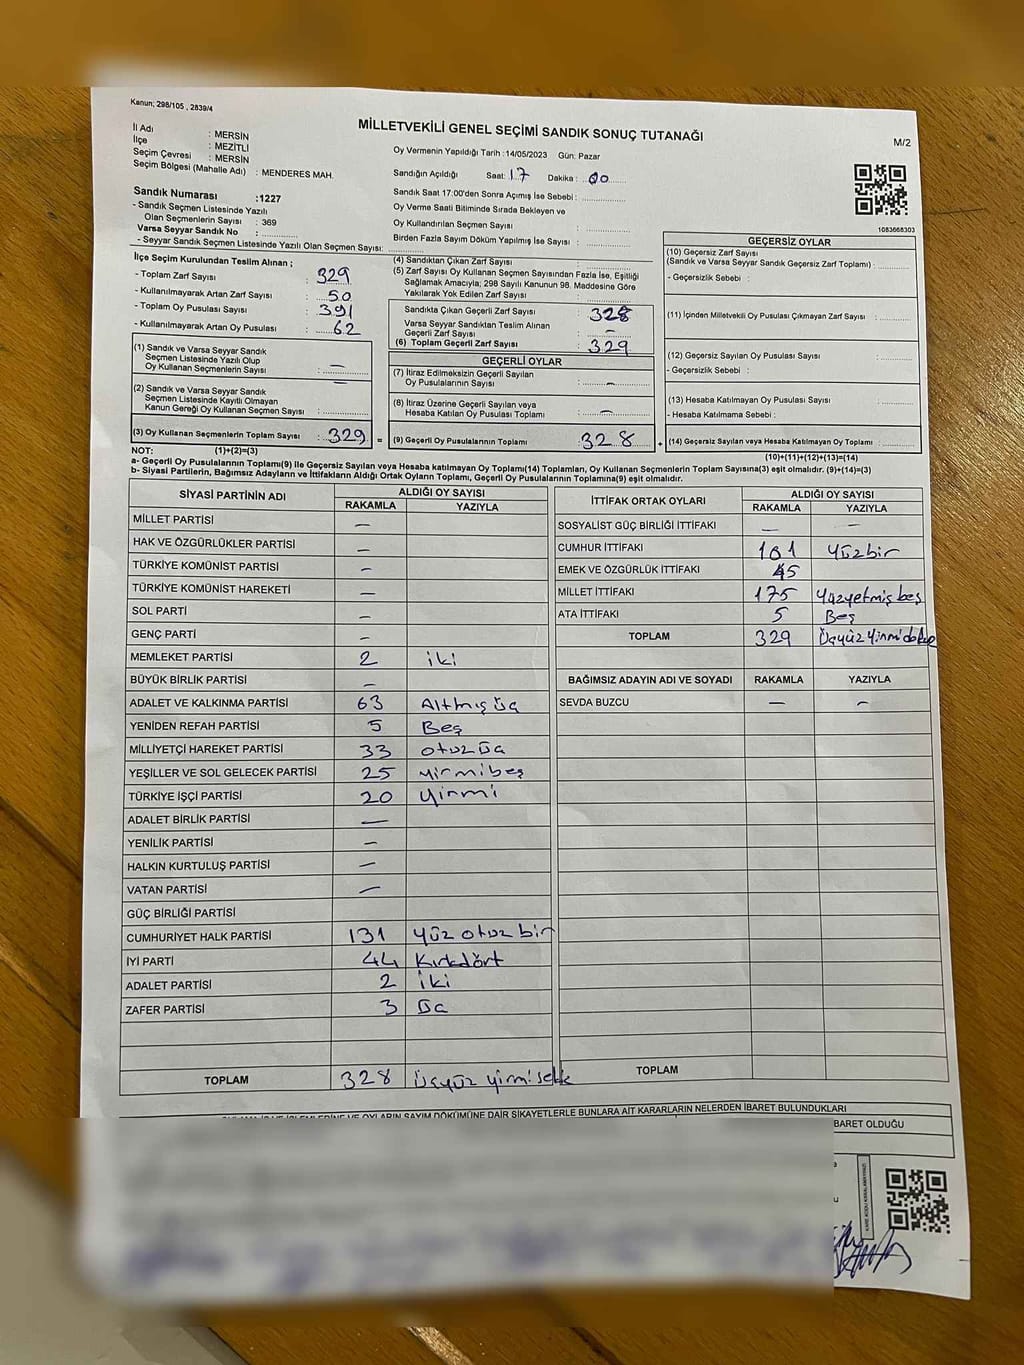 Kanun; 298/105 , 2839/4
MİLLETVEKİLİ GENEL SEÇİMİ SANDIK SONUÇ TUTANAĞI
M/2
İl Adı : MERSİN
İlçe : MEZİTLİ
Seçim Çevresi : MERSİN
Seçim Bölgesi (Mahalle Adı) : MENDERES MAH.
Oy Vermenin Yapıldığı Tarih : 14/05/2023 Gün: Pazar
Sandığın Açıldığı Saat: 17 Dakika : 00
Sandık Saat 17:00'den Sonra Açımış İse Sebebi :
Oy Verme Saati Bitiminde Sırada Bekleyen ve
Oy Kullandırılan Seçmen Sayısı :
Birden Fazla Sayım Döküm Yapılmış İse Sayısı :
1083668303
Sandık Numarası :1227
- Sandık Seçmen Listesinde Yazılı
Olan Seçmenlerin Sayısı : 369
Varsa Seyyar Sandık No :
- Seyyar Sandık Seçmen Listesinde Yazılı Olan Seçmen Sayısı:
İlçe Seçim Kurulundan Teslim Alınan ;
- Toplam Zarf Sayısı : 329
- Kullanılmayarak Artan Zarf Sayısı : 50
- Toplam Oy Pusulası Sayısı : 391
- Kullanılmayarak Artan Oy Pusulası : 62
(1) Sandık ve Varsa Seyyar Sandık
Seçmen Listesinde Yazılı Olup
Oy Kullanan Seçmenlerin Sayısı : —
(2) Sandık ve Varsa Seyyar Sandık
Seçmen Listesinde Kayıtlı Olmayan
Kanun Gereği Oy Kullanan Seçmen Sayısı : —
(3) Oy Kullanan Seçmenlerin Toplam Sayısı : 329 =
(4) Sandıktan Çıkan Zarf Sayısı :
(5) Zarf Sayısı Oy Kullanan Seçmen Sayısından Fazla İse, Eşitliği
Sağlamak Amacıyla; 298 Sayılı Kanunun 98. Maddesine Göre
Yakılarak Yok Edilen Zarf Sayısı :
Sandıkta Çıkan Geçerli Zarf Sayısı : 328
Varsa Seyyar Sandıktan Teslim Alınan
Geçerli Zarf Sayısı : —
(6) Toplam Geçerli Zarf Sayısı : 329
GEÇERLİ OYLAR
(7) İtiraz Edilmeksizin Geçerli Sayılan
Oy Pusulalarının Sayısı : —
(8) İtiraz Üzerine Geçerli Sayılan veya
Hesaba Katılan Oy Pusulası Toplamı : —
(9) Geçerli Oy Pusulalarının Toplamı : 328 +
GEÇERSİZ OYLAR
(10) Geçersiz Zarf Sayısı
(Sandık ve Varsa Seyyar Sandık Geçersiz Zarf Toplamı) :
- Geçersizlik Sebebi :
(11) İçinden Milletvekili Oy Pusulası Çıkmayan Zarf Sayısı :
(12) Geçersiz Sayılan Oy Pusulası Sayısı :
- Geçersizlik Sebebi :
(13) Hesaba Katılmayan Oy Pusulası Sayısı :
- Hesaba Katılmama Sebebi :
(14) Geçersiz Sayılan veya Hesaba Katılmayan Oy Toplamı :
NOT: (1)+(2)=(3)
(10)+(11)+(12)+(13)=(14)
a- Geçerli Oy Pusulalarının Toplamı(9) ile Geçersiz Sayılan veya Hesaba katılmayan Oy Toplamı(14) Toplamları, Oy Kullanan Seçmenlerin Toplam Sayısına(3) eşit olmalıdır. (9)+(14)=(3)
b- Siyasi Partilerin, Bağımsız Adayların ve İttifakların Aldığı Ortak Oyların Toplamı, Geçerli Oy Pusulalarının Toplamına(9) eşit olmalıdır.
SİYASİ PARTİNİN ADI ALDIĞI OY SAYISI
RAKAMLA YAZIYLA
MİLLET PARTİSİ —
HAK VE ÖZGÜRLÜKLER PARTİSİ —
TÜRKİYE KOMÜNİST PARTİSİ —
TÜRKİYE KOMÜNİST HAREKETİ —
SOL PARTİ —
GENÇ PARTİ —
MEMLEKET PARTİSİ 2 iki
BÜYÜK BİRLİK PARTİSİ —
ADALET VE KALKINMA PARTİSİ 63 Altmış üç
YENİDEN REFAH PARTİSİ 5 Beş
MİLLİYETÇİ HAREKET PARTİSİ 33 otuz üç
YEŞİLLER VE SOL GELECEK PARTİSİ 25 yirmibeş
TÜRKİYE İŞÇİ PARTİSİ 20 yirmi
ADALET BİRLİK PARTİSİ —
YENİLİK PARTİSİ —
HALKIN KURTULUŞ PARTİSİ —
VATAN PARTİSİ —
GÜÇ BİRLİĞİ PARTİSİ
CUMHURİYET HALK PARTİSİ 131 yüz otuz bir
İYİ PARTİ 44 Kırkdört
ADALET PARTİSİ 2 iki
ZAFER PARTİSİ 3 Üç
TOPLAM 328 Üçyüz yirmi sekk
İTTİFAK ORTAK OYLARI ALDIĞI OY SAYISI
RAKAMLA YAZIYLA
SOSYALİST GÜÇ BİRLİĞİ İTTİFAKI — —
CUMHUR İTTİFAKI 101 yüzbir
EMEK VE ÖZGÜRLÜK İTTİFAKI 45
MİLLET İTTİFAKI 175 yüzyetmiş beş
ATA İTTİFAKI 5 Beş
TOPLAM 329
BAĞIMSIZ ADAYIN ADI VE SOYADI RAKAMLA YAZIYLA
SEVDA BUZCU — —
TOPLAM
OYLARIN SAYIM DÖKÜMÜNE DAİR ŞİKAYETLERLE BUNLARA AİT KARARLARIN NELERDEN İBARET BULUNDUKLARI
BARET OLDUĞU